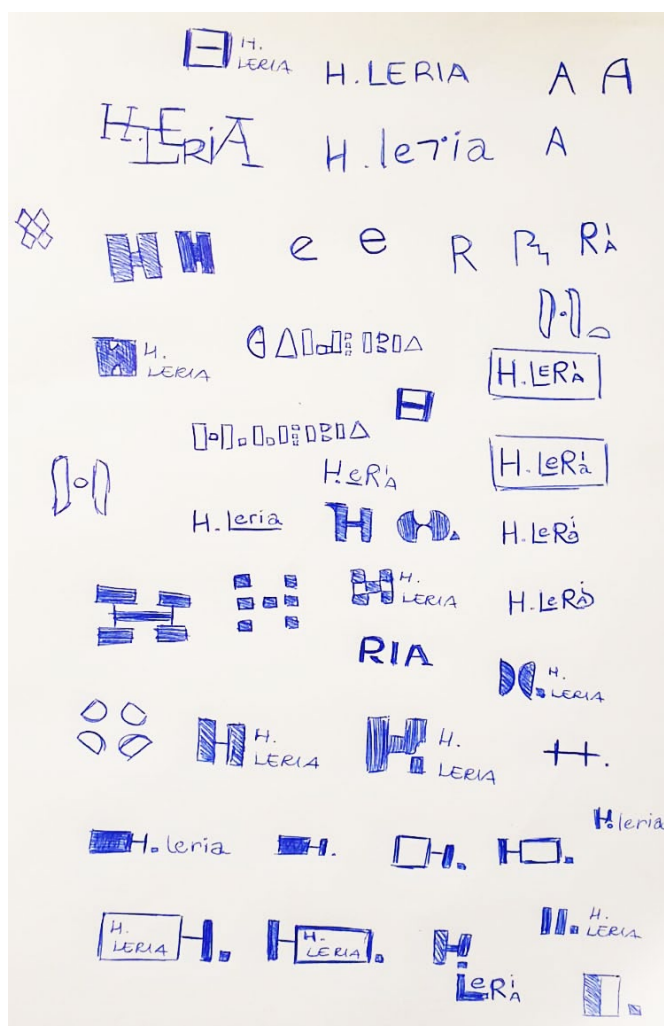 H.
LERIA
H.LERIA
A A
H.LERiA
H.leria
A
H H
e e
R R RiA
H.
LERIA
H.LERiA
H.LeRiA
H.LeRia
H.Leria
H
H.LeRia
H.
LERIA
H.LeRiA
RIA
H.
LERIA
H
H.
LERIA
H.
H.
LERIA
H.
H.leria
H.leria
H.
H.
H.
H.
LERIA
H.
H.
LERIA
H.
H.
LeRiA
H.
LERIA